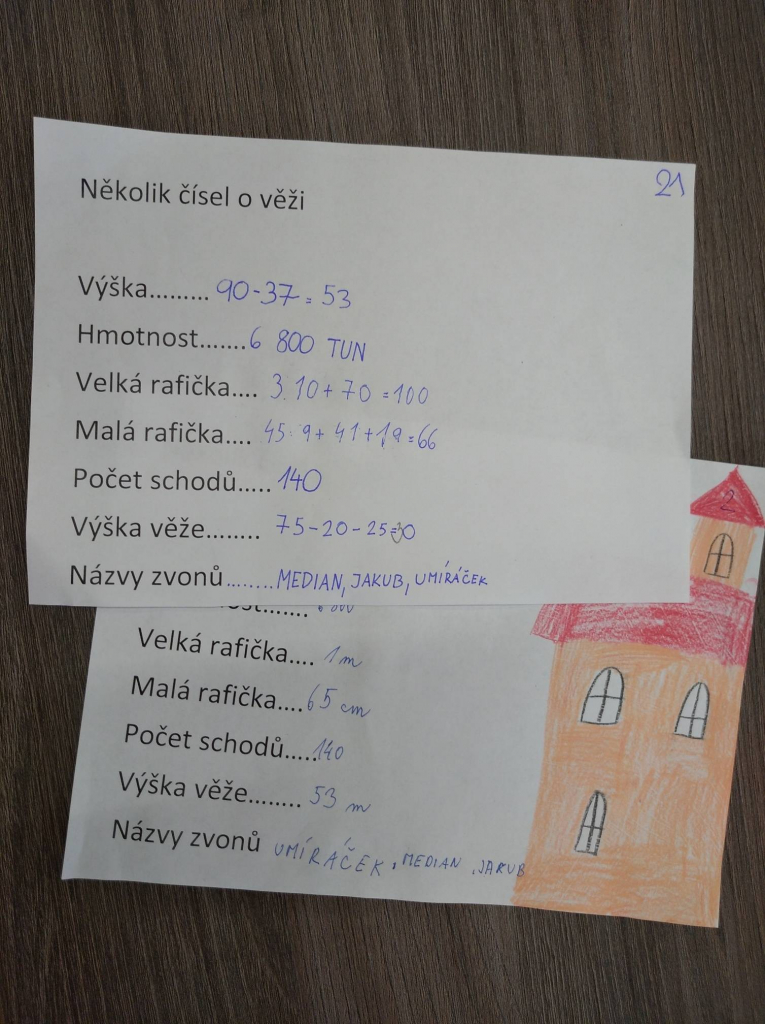 21
Několik čísel o věži
Výška......... 90-37 = 53
Hmotnost.......6 800 TUN
Velká rafička.... 3.10+70 =100
Malá rafička.... 45:9+41+19=66
Počet schodů..... 140
Výška věže........ 75-20-25=0
Názvy zvonů......... MEDIAN, JAKUB, UMÍRÁČEK
2
Velká rafička.... 1m
Malá rafička....65 cm
Počet schodů.....140
Výška věže........ 53 m
Názvy zvonů UMÍRÁČEK, MEDIAN, JAKUB